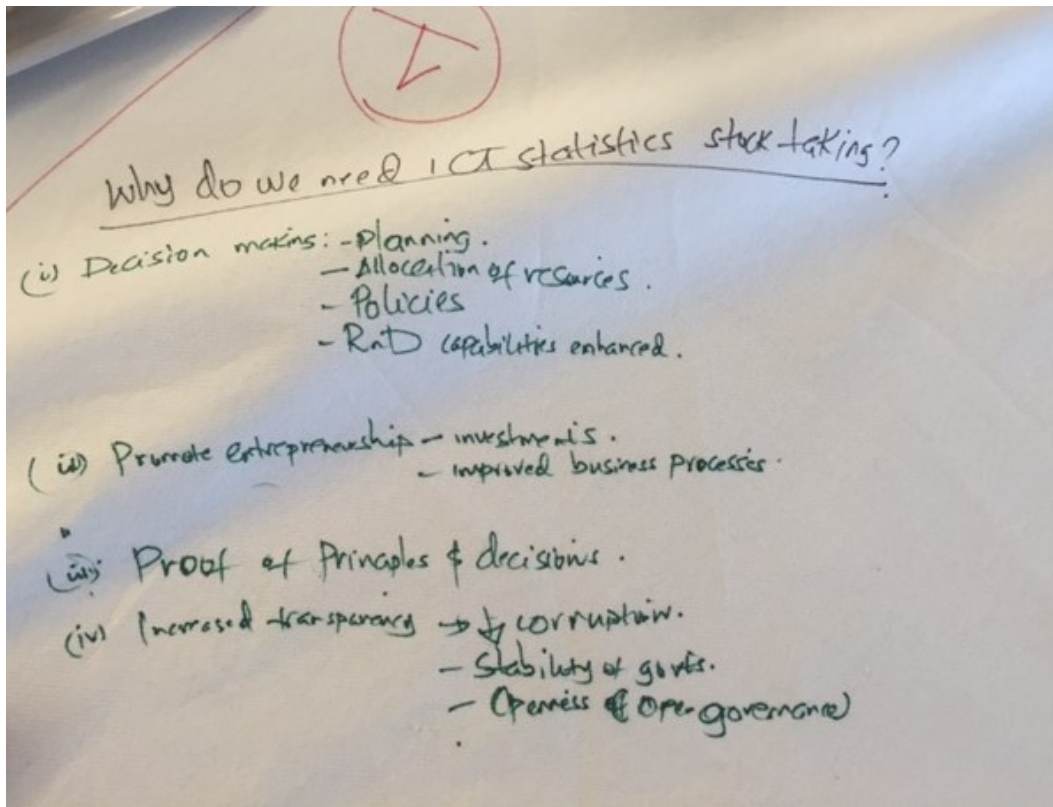 Why do we need ICT statistics stock taking?
(i) Decision making: - Planning.
- Allocation of resources.
- Policies
- RnD capabilities enhanced.
(ii) Promote entrepreneurship - investments.
- improved business processes.
(iii) Proof of Principles & decisions.
(iv) Increased transparency → ↓ corruption.
- Stability of govts.
- Openness & Open governance)